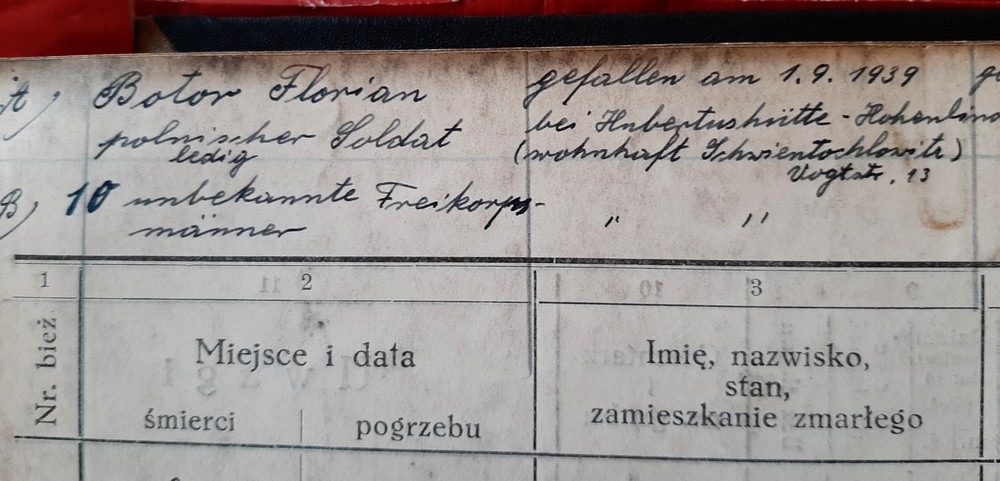 A) Botor Florian gefallen am 1.9. 1939
polnischer Soldat bei Hubertushütte - Hohenlind
ledig (wohnhaft Schwientochlowitz)
Vogtstr. 13
B) 10 unbekannte Freikorps- " "
männer
1 2 3
Nr. bież. Miejsce i data Imię, nazwisko,
stan,
śmierci pogrzebu zamieszkanie zmarłego